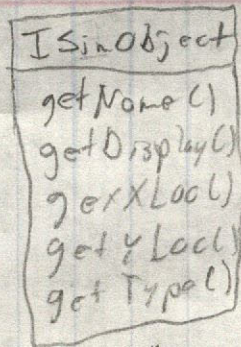 ISimObject
getName()
getDisplay()
getXLoc()
getYLoc()
getType()